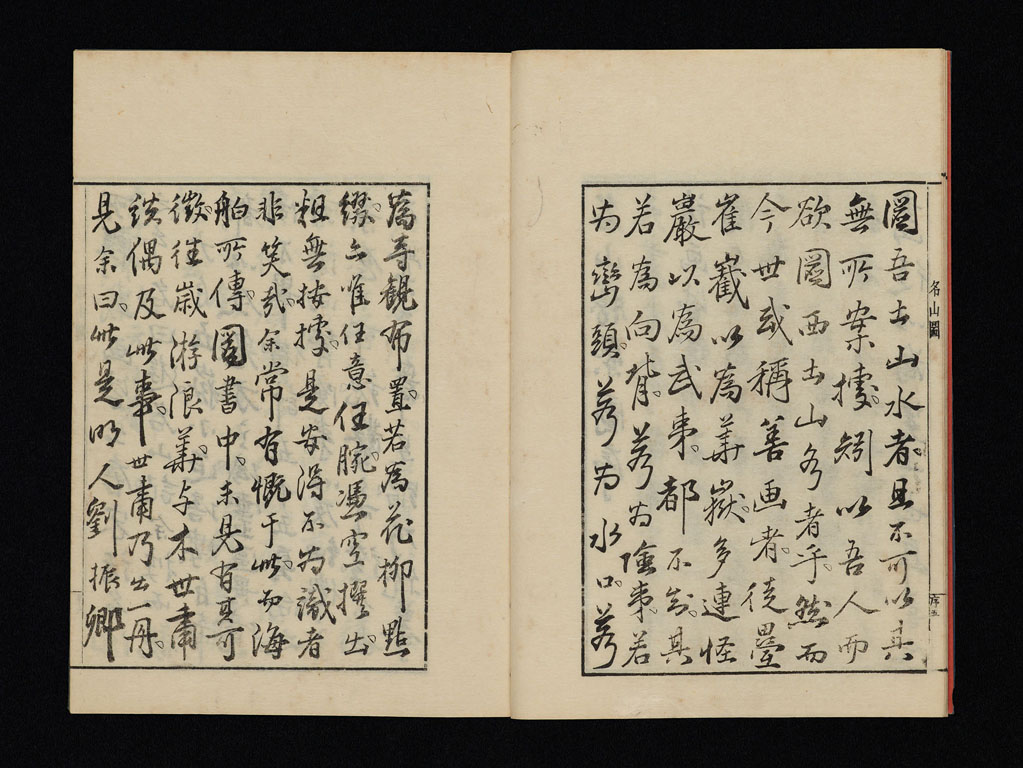 圖吾土山水者。且不可以真
無所案據。矧以吾人而
欲圖西土山水者乎。然而
今世或稱善画者。徒壘
崔嶻以為華嶽。多連怪
巖以為武夷。都不知其
若為向背。若為陰夷。若
為巒頭。若為水口。若
名山圖
序五
為寺觀布置。若為花柳點
綴。亦唯任意任腕。憑空撰出。
粗無按據。是安得不為識者
非笑哉。余常有慨于此。而海
舶所傳圖書中。未見有其可
徵。往歲游浪華。与木世肅
談偶及此事。世肅乃出一冊。
見余曰。此是明人劉振卿